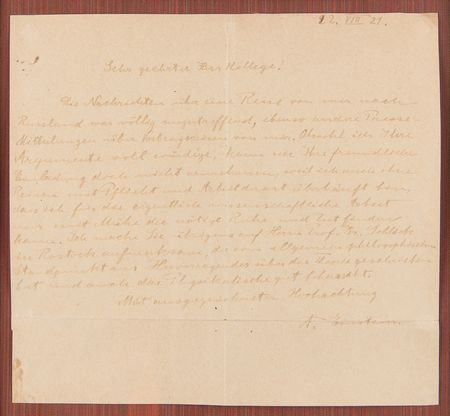 12. VIII 21.
Sehr geehrter Herr Kollege!
Die Nachrichten über eine Reise von mir nach
Russland war völlig unzutreffend, ebenso andere Presse-
Mitteilungen über von mir. Obwohl ich Ihre
Argumente voll würdige, kann ich Ihre freundliche
Einladung doch nicht annehmen, weil ich auch ohne
Reisen mit Pflicht und Arbeit derart überhäuft bin,
dass ich für das eigentliche wissenschaftliche Arbeit
nur mit Mühe die nötige Ruhe und Zeit finden
kann. Ich mache Sie übrigens auf Herrn Prof. Dr. Schlick
in Rostock aufmerksam, der vom allgemein philosophischen
Standpunkt aus Hervorragendes über die geschrieben
hat und auch das Physikalische gut beherrscht.
Mit ausgezeichneter Hochachtung
A. Einstein.